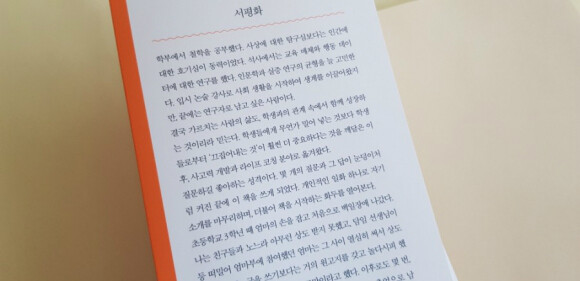 서평화
학부에서 철학을 공부했다. 사상에 대한 탐구심보다는 인간에
대한 호기심이 동력이었다. 석사에서는 교육 매체와 행동 데이
터에 대한 연구를 했다. 인문학과 실증 연구의 균형을 늘 고민한
다. 입시 논술 강사로 사회 생활을 시작하여 생계를 이끌어왔지
만, 끝에는 연구자로 남고 싶은 사람이다.
결국 가르치는 사람의 삶도, 학생과의 관계 속에서 함께 성장하
는 것이라 믿는다. 학생들에게 무언가 밀어 넣는 것보다 학생
들로부터 '끄집어내는 것'이 훨씬 더 중요하다는 것을 깨달은 이
후, 사고력 개발과 라이프 코칭 분야로 옮겨왔다.
질문하길 좋아하는 성격이다. 몇 개의 질문과 그 답이 눈덩이처
럼 커진 끝에 이 책을 쓰게 되었다. 개인적인 일화 하나로 자기
소개를 마무리하며, 더불어 책을 시작하는 화두를 열어본다.
초등학교 3학년 때 엄마의 손을 잡고 처음으로 백일장에 나갔다.
나는 친구들과 노느라 아무런 상도 받지 못했고, 담임 선생님이
등 떠밀어 엄마부에 참여했던 엄마는 그 사이 열심히 써서 상도
글을 쓰기보다는 거의 원고지를 갖고 놀다시피 했
이라고 했다. 이후로도 몇 번,
으로 남